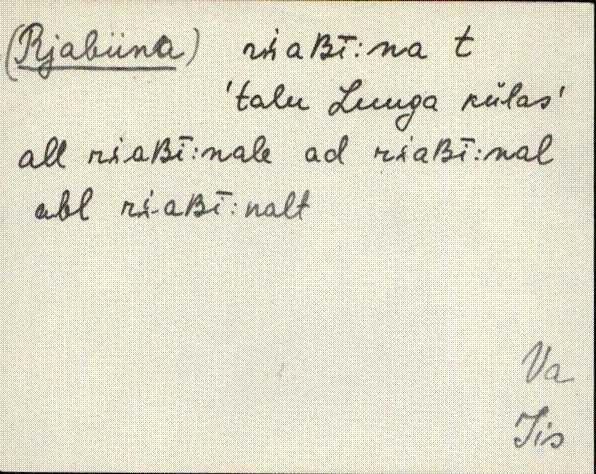 (Rjabiina) riaʙī:na t
'talu Luuga külas'
all riaʙī:nale ad riaʙī:nal
abl riaʙī:nalt
Va
Iis